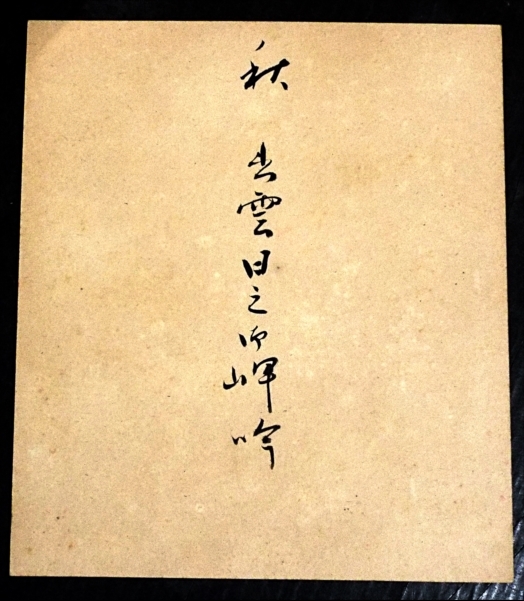 秋 出雲日之御岬吟